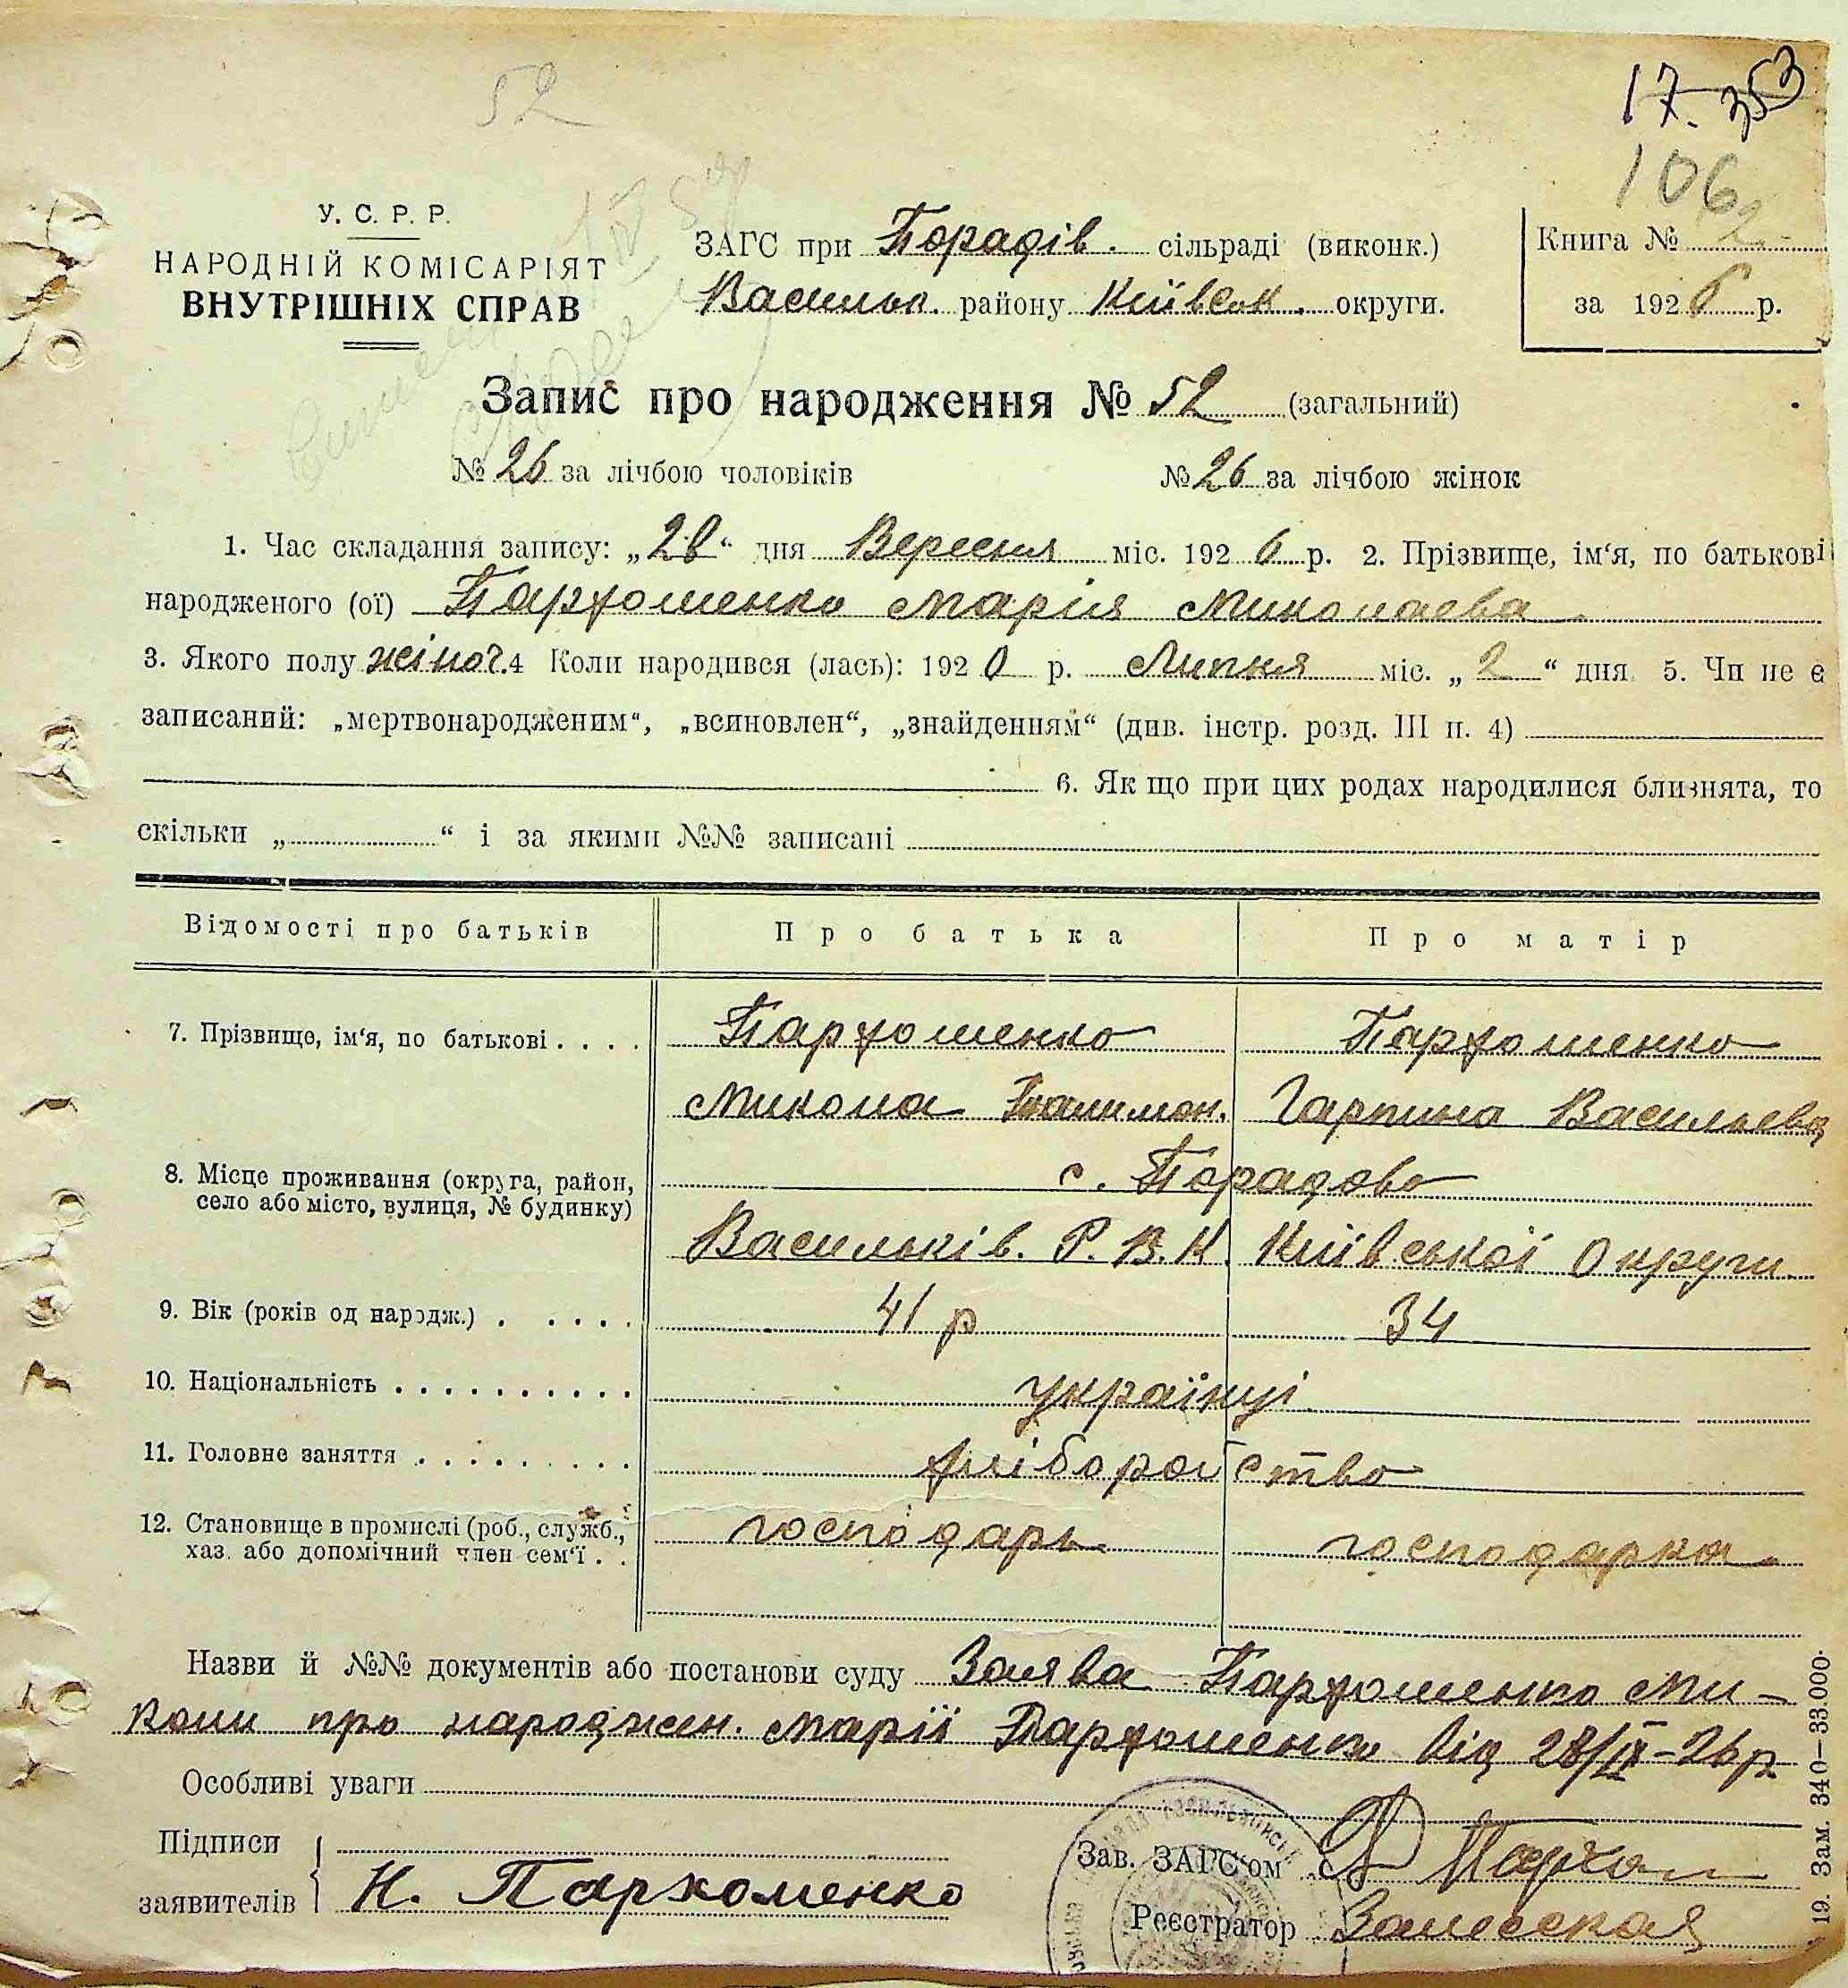 52
17. 353
106
У. С. Р. Р.
НАРОДНІЙ КОМІСАРІЯТ
ВНУТРІШНІХ СПРАВ
ЗАГС при Порадів. сільраді (виконк.)
Васильк. району Київськ. округи.
Книга № 2
за 1926 р.
Запис про народження № 52 (загальний)
№ 26 за лічбою чоловіків № 26 за лічбою жінок
1. Час складання запису: „28“ дня Вересня міс. 1926 р. 2. Прізвище, ім‘я, по батькові
народженого (ої) Пархоменко Марія Миколаева
3. Якого полу жіноч. 4 Коли народився (лась): 1920 р. Липня міс. „2“ дня 5. Чи не є
записаний: „мертвонародженим“, „всиновлен“, „знайденням“ (див. інстр. розд. III п. 4)
6. Як що при цих родах народилися близнята, то
скільки „ “ і за якими №№ записані
Відомості про батьків Про батька Про матір
7. Прізвище, ім‘я, по батькові . . . . Пархоменко Пархоменко
Микола Гарпина Васильева
8. Місце проживання (округа, район, с. Порадово
село або місто, вулиця, № будинку)
Васильків. Р. В. К. Київської Округи
9. Вік (років од народж.) . . . . . 41 р 34
10. Національність . . . . . . . . . . українці
11. Головне заняття . . . . . . . . . хліборобство
12. Становище в промислі (роб., служб., господарь господарка
хаз. або допомічний член сем‘ї . .
Назви й №№ документів або постанови суду Заява Пархоменко Ми-
коли про народжен. Марії Пархоменко від 28/IX-26 р
Особливі уваги
Підписи
заявителів Н. Пархоменко
Зав. ЗАГС‘ом
Реєстратор
19. Зам. 340—33.000.